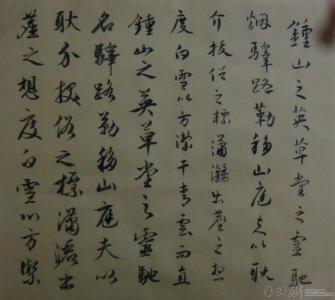 鍾山之英草堂之靈馳
烟驛路勒移山庭夫以耿
介拔俗之標瀟灑出塵之想
度白雪以方潔干青雲而直
鍾山之英草堂之靈馳
名驛路勒移山庭夫以
耿介拔俗之標瀟灑出
塵之想度白雪以方潔